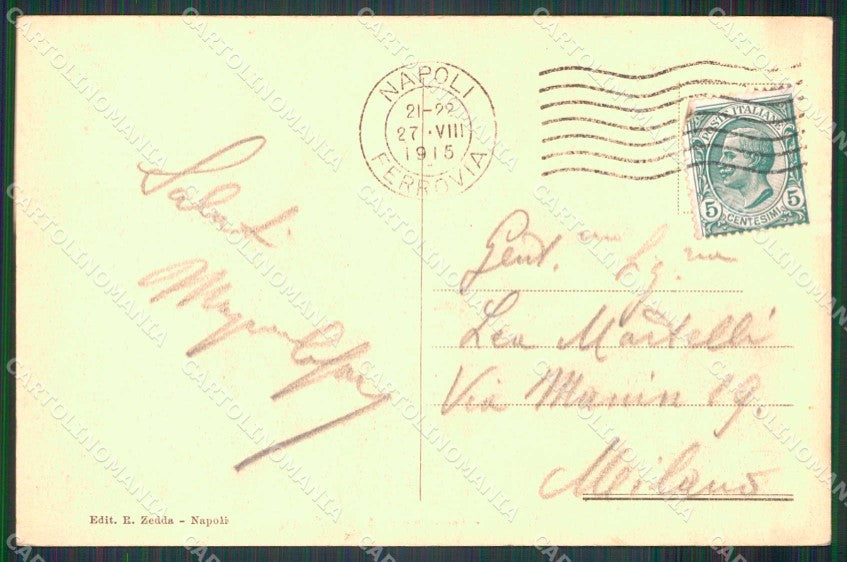 NAPOLI
21-22
27·VIII
1915
FERROVIA
POSTE ITALIANE
5 5
CENTESIMI
Saluti
Gent.ma Sig.na
Lea Martelli
Via Manin 19.
Milano
Edit. R. Zedda - Napoli
CARTOLINOMANIA